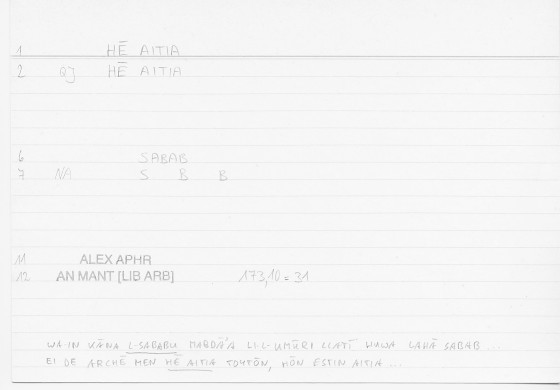 1 HĒ AITIA
2 QJ HĒ AITIA
6 SABAB
7 NA S B B
11 ALEX APHR
12 AN MANT [LIB ARB] 173,10 = 31
WA-IN KĀNA L-SABABU MABDA'A LI-L-UMŪRI LLATĪ HUWA LAHĀ SABAB ...
EI DE ARCHĒ MEN HĒ AITIA TOUTŌN, HŌN ESTIN AITIA ...